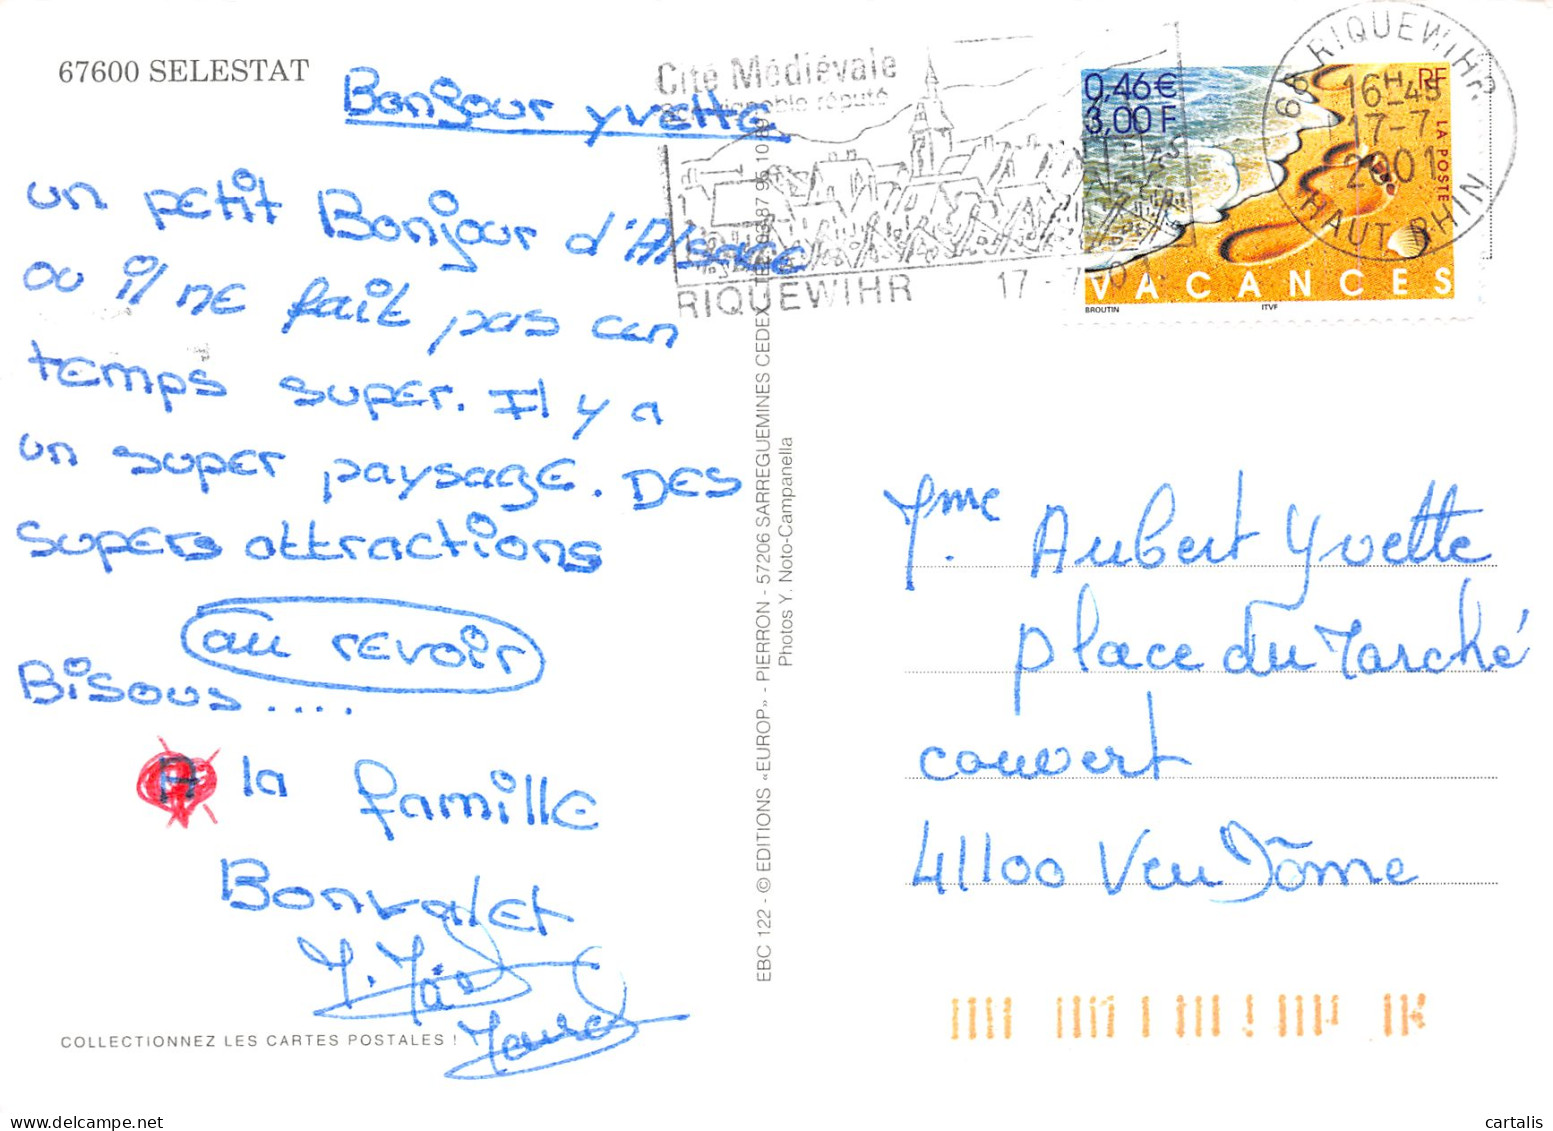 67600 SELESTAT
Bonjour yvette
un petit Bonjour d'Alsace
ou il ne fait pas un
temps super. Il y a
un super paysage. DES
supers attractions
au revoir
Bisous....
la famille
Bonvalet
COLLECTIONNEZ LES CARTES POSTALES !
EBC 122 - © EDITIONS «EUROP» - PIERRON - 57206 SARREGUEMINES CEDEX
Photos Y. Noto-Campanella
Cité Médiévale
vignoble réputé
RIQUEWIHR 17 - 7
0,46€
3,00 F
RF
LA POSTE
VACANCES
BROUTIN ITVF
68 RIQUEWIHR
16H-45
17-7
2001
HAUT RHIN
Mme Aubert Yvette
place du Marché
couvert
41100 Vendôme
cartalis